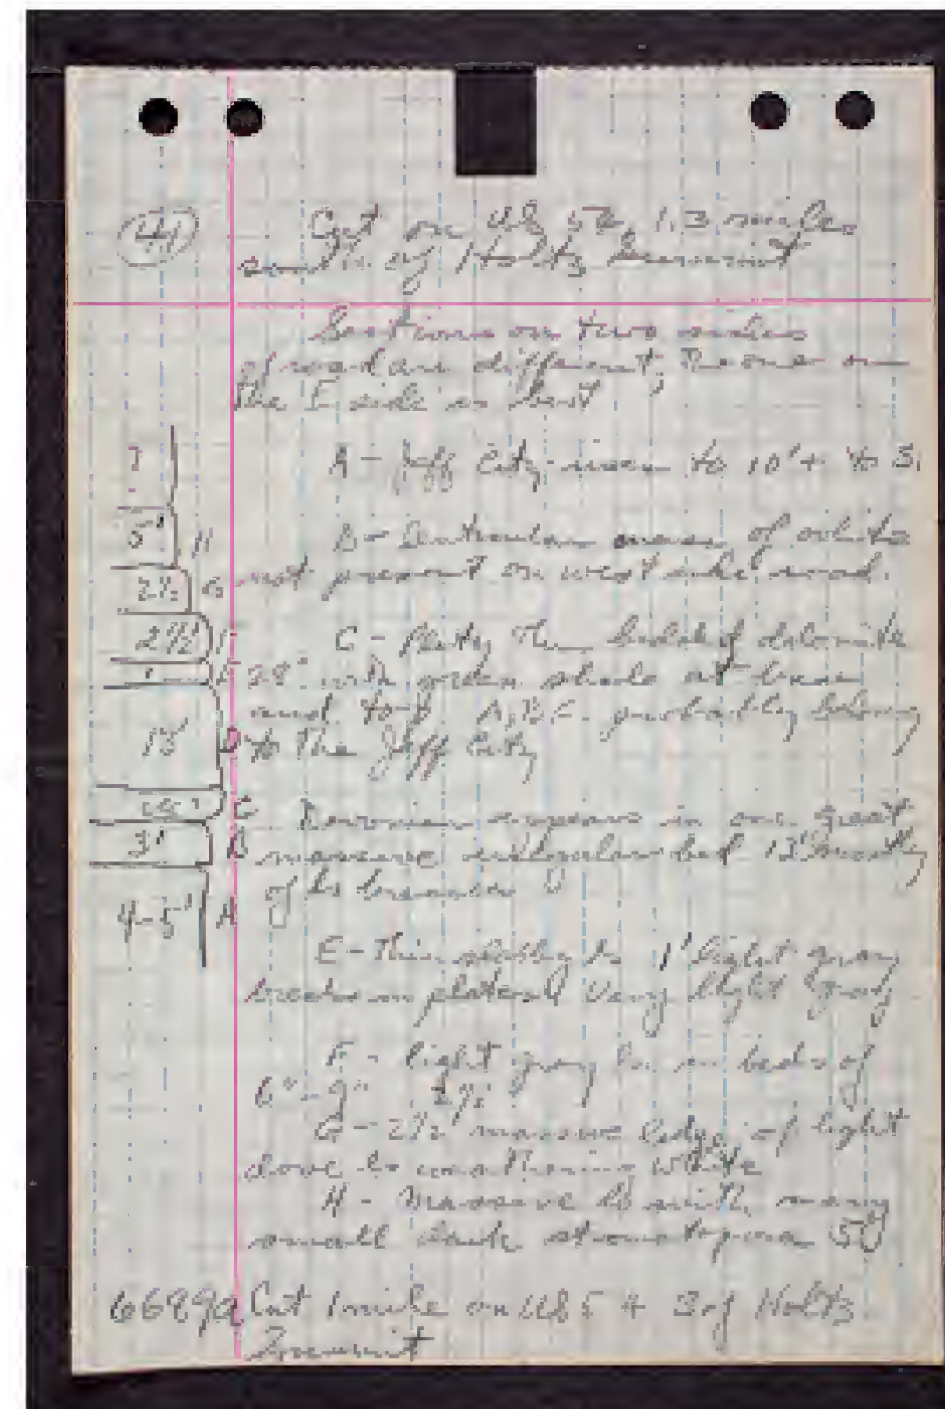 41
Cut on US 54, 1.3 miles
south of Holts Summit
Sections on two sides
of road are different, the one on
the E side is best
A - Jeff City rises to 10'+ to S.
B - Lenticular mass of oolite
not present on west side road.
C - Platy thin beds of dolomite
28" with green shale at base
and top. A, B, C. probably belong
to the Jeff City
Devonian appears in one great
massive irregular bed 13'
of ls breccia
E - Thin slabby ls 1' light gray
breaks in plates. Very light gray
F - light gray ls in beds of
6"-9" 2½
G - 2½' massive ledge of light
dove ls weathering white
H - Massive ls with many
small dark stromatopora 5'
6689a Cut 1 mile on US 54 S of Holts
Summit
?
5' H
2½ G
2½ F
1 E
13' D
28" C
3' B
4-5' A